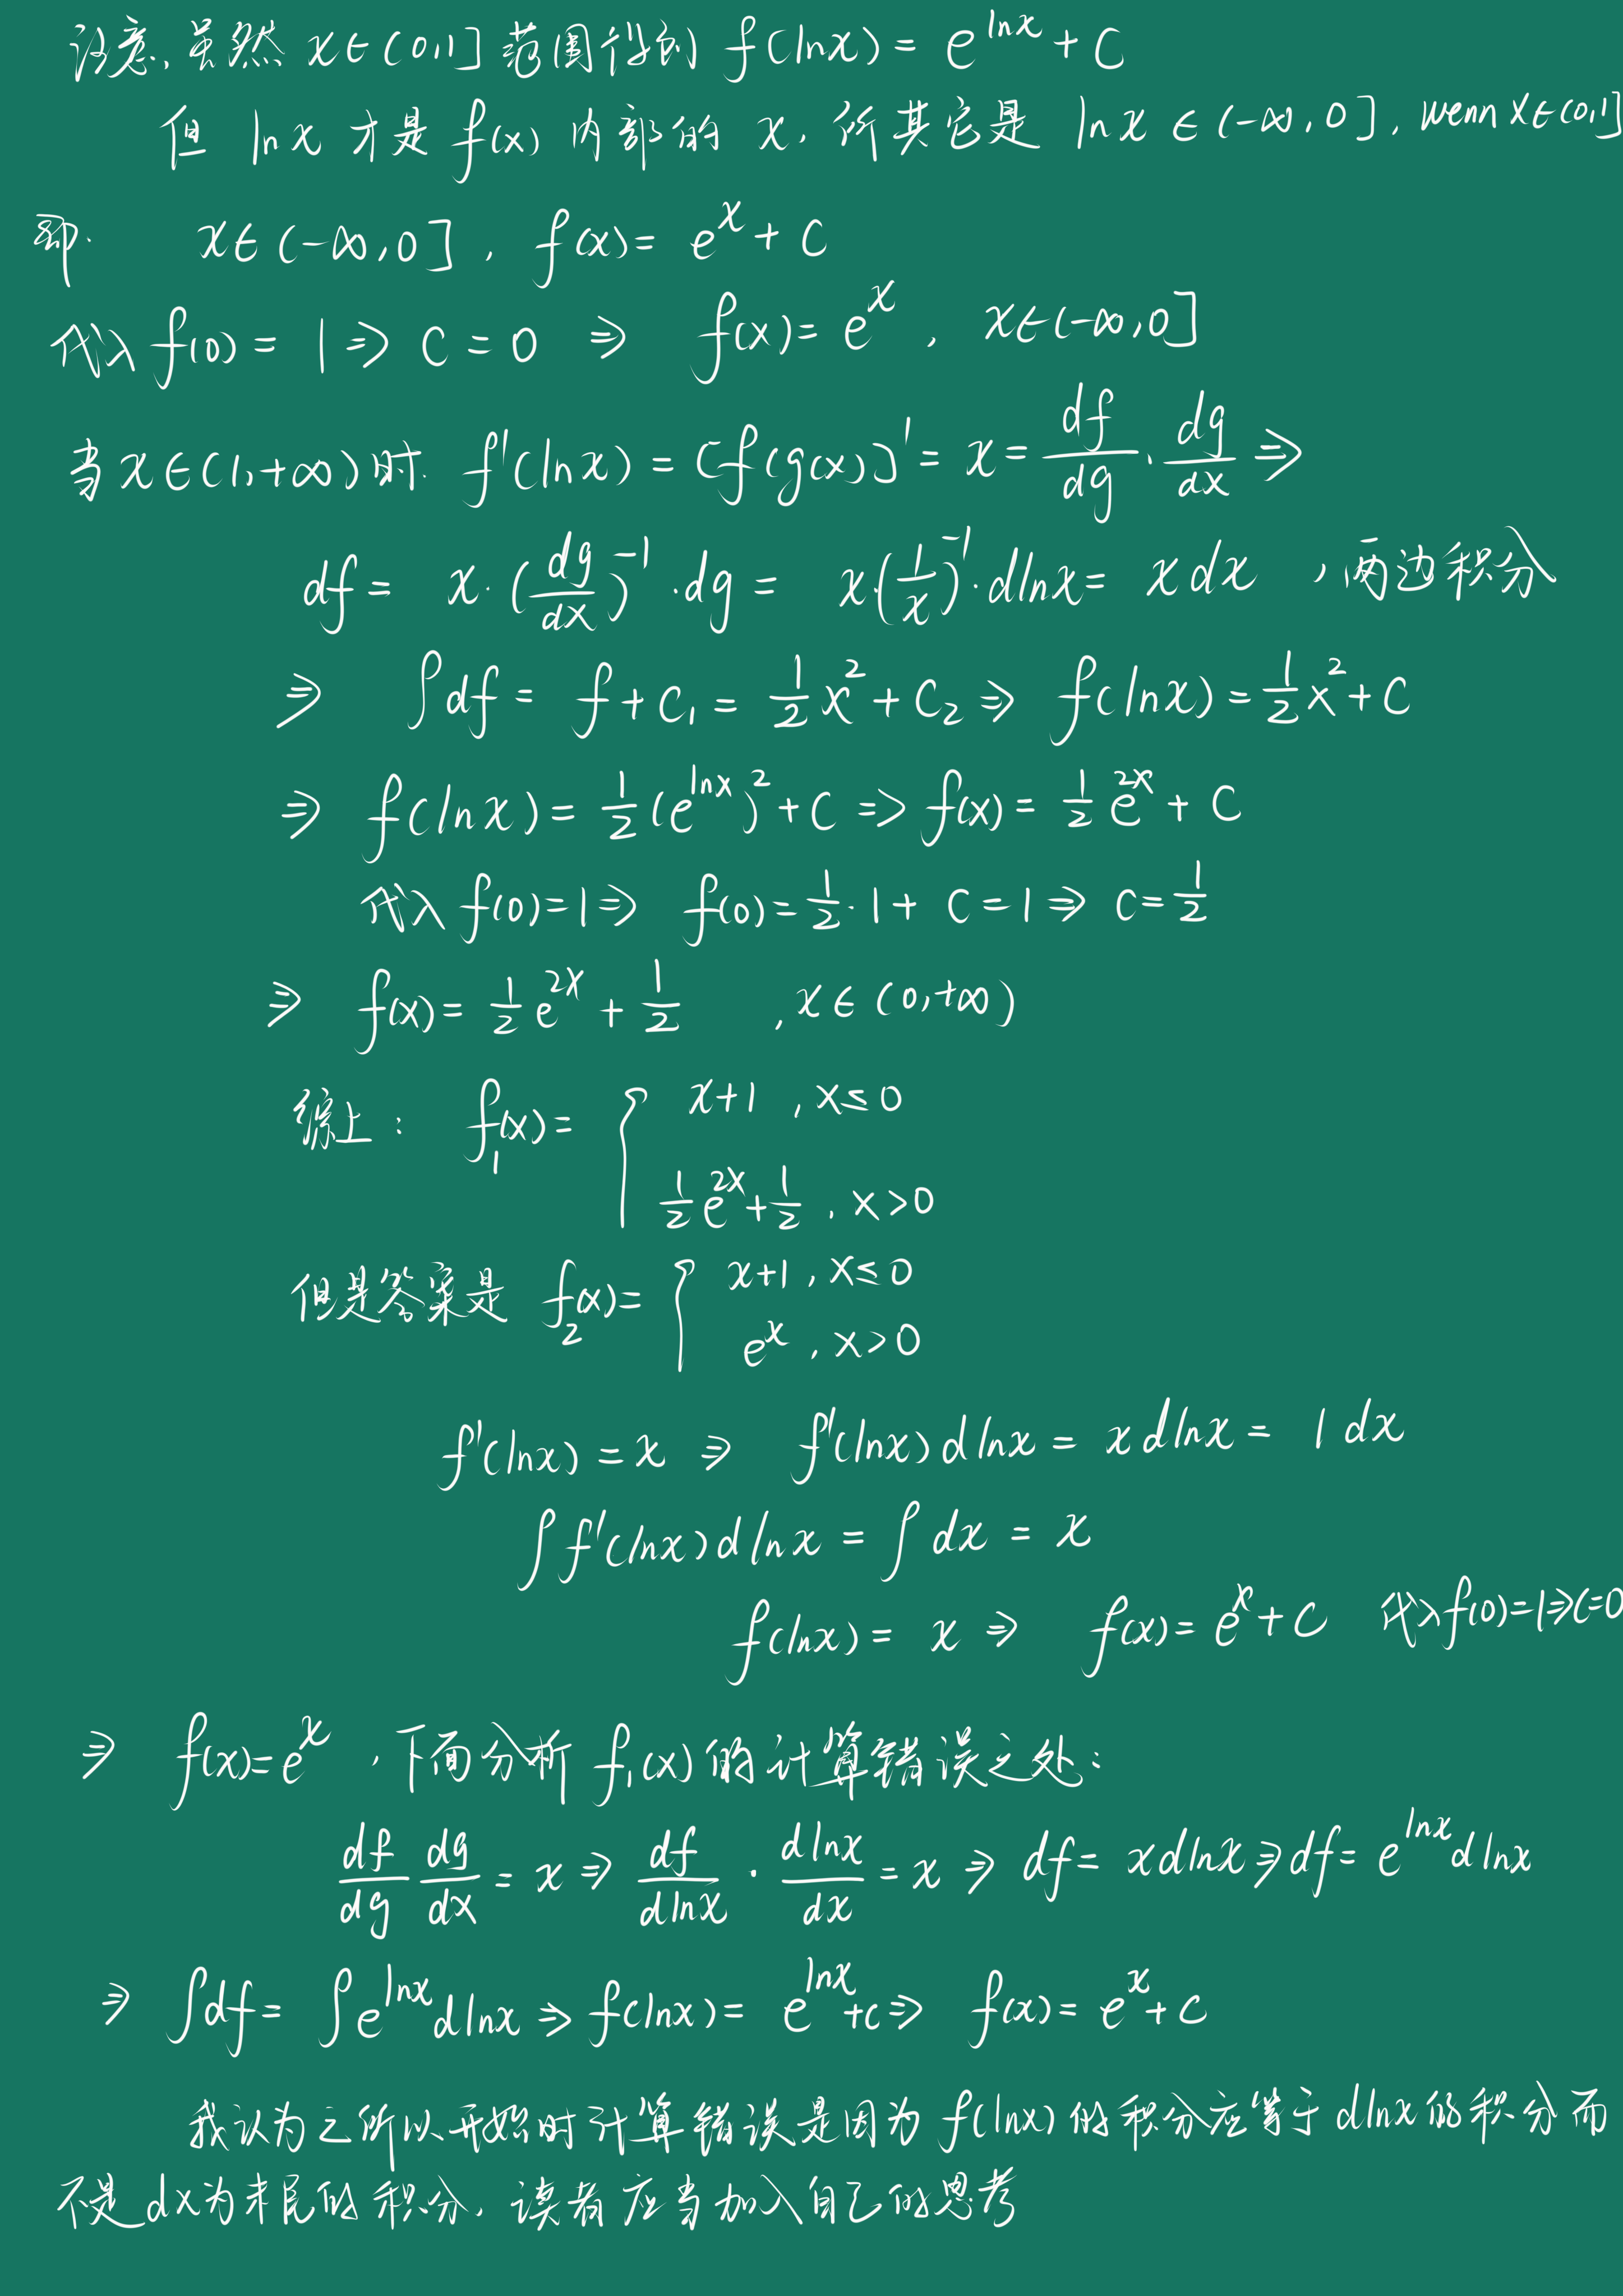 注意,虽然 x∈(0,1] 范围得到 f(lnx) = e^{lnx} + C
但 lnx 才是 f(x) 内部的 x, 所其它是 lnx ∈ (-∞,0], wenn x∈(0,1]
即. x∈(-∞,0], f(x) = e^x + C
代入 f(0) = 1 ⇒ C = 0 ⇒ f(x) = e^x, x∈(-∞,0]
当 x∈(1,+∞) 时. f'(lnx) = [f(g(x)]' = x = \frac{df}{dg}·\frac{dg}{dx} ⇒
df = x·(\frac{dg}{dx})^{-1}·dg = x·(\frac{1}{x})^{-1}·dlnx = xdx ,两边积分
⇒ ∫df = f + C_1 = \frac{1}{2}x^2 + C_2 ⇒ f(lnx) = \frac{1}{2}x^2 + C
⇒ f(lnx) = \frac{1}{2}(e^{lnx})^2 + C => f(x) = \frac{1}{2}e^{2x} + C
代入 f(0)=1 ⇒ f(0) = \frac{1}{2}·1 + C = 1 ⇒ C = \frac{1}{2}
⇒ f(x) = \frac{1}{2}e^{2x} + \frac{1}{2} , x∈(0,+∞)
综上: f_1(x) = { x+1 , x≤0
\frac{1}{2}e^{2x} + \frac{1}{2} , x>0
但是答案是 f_2(x) = { x+1 , x≤0
e^x , x>0
f'(lnx) = x ⇒ f'(lnx)dlnx = xdlnx = 1dx
∫f'(lnx)dlnx = ∫dx = x
f(lnx) = x ⇒ f(x) = e^x + C 代入f(0)=1⇒C=0
⇒ f(x) = e^x ,下面分析 f_1(x) 的计算错误之处:
\frac{df}{dg}\frac{dg}{dx} = x ⇒ \frac{df}{dlnx}·\frac{dlnx}{dx} = x ⇒ df = xdlnx ⇒ df = e^{lnx}dlnx
⇒ ∫df = ∫e^{lnx}dlnx ⇒ f(lnx) = e^{lnx}+c ⇒ f(x) = e^x + c
我认为之所以开始时计算错误是因为 f(lnx) 的积分应等于 dlnx 的积分而
不是 dx为末尾的积分, 读者应当加入自己的思考